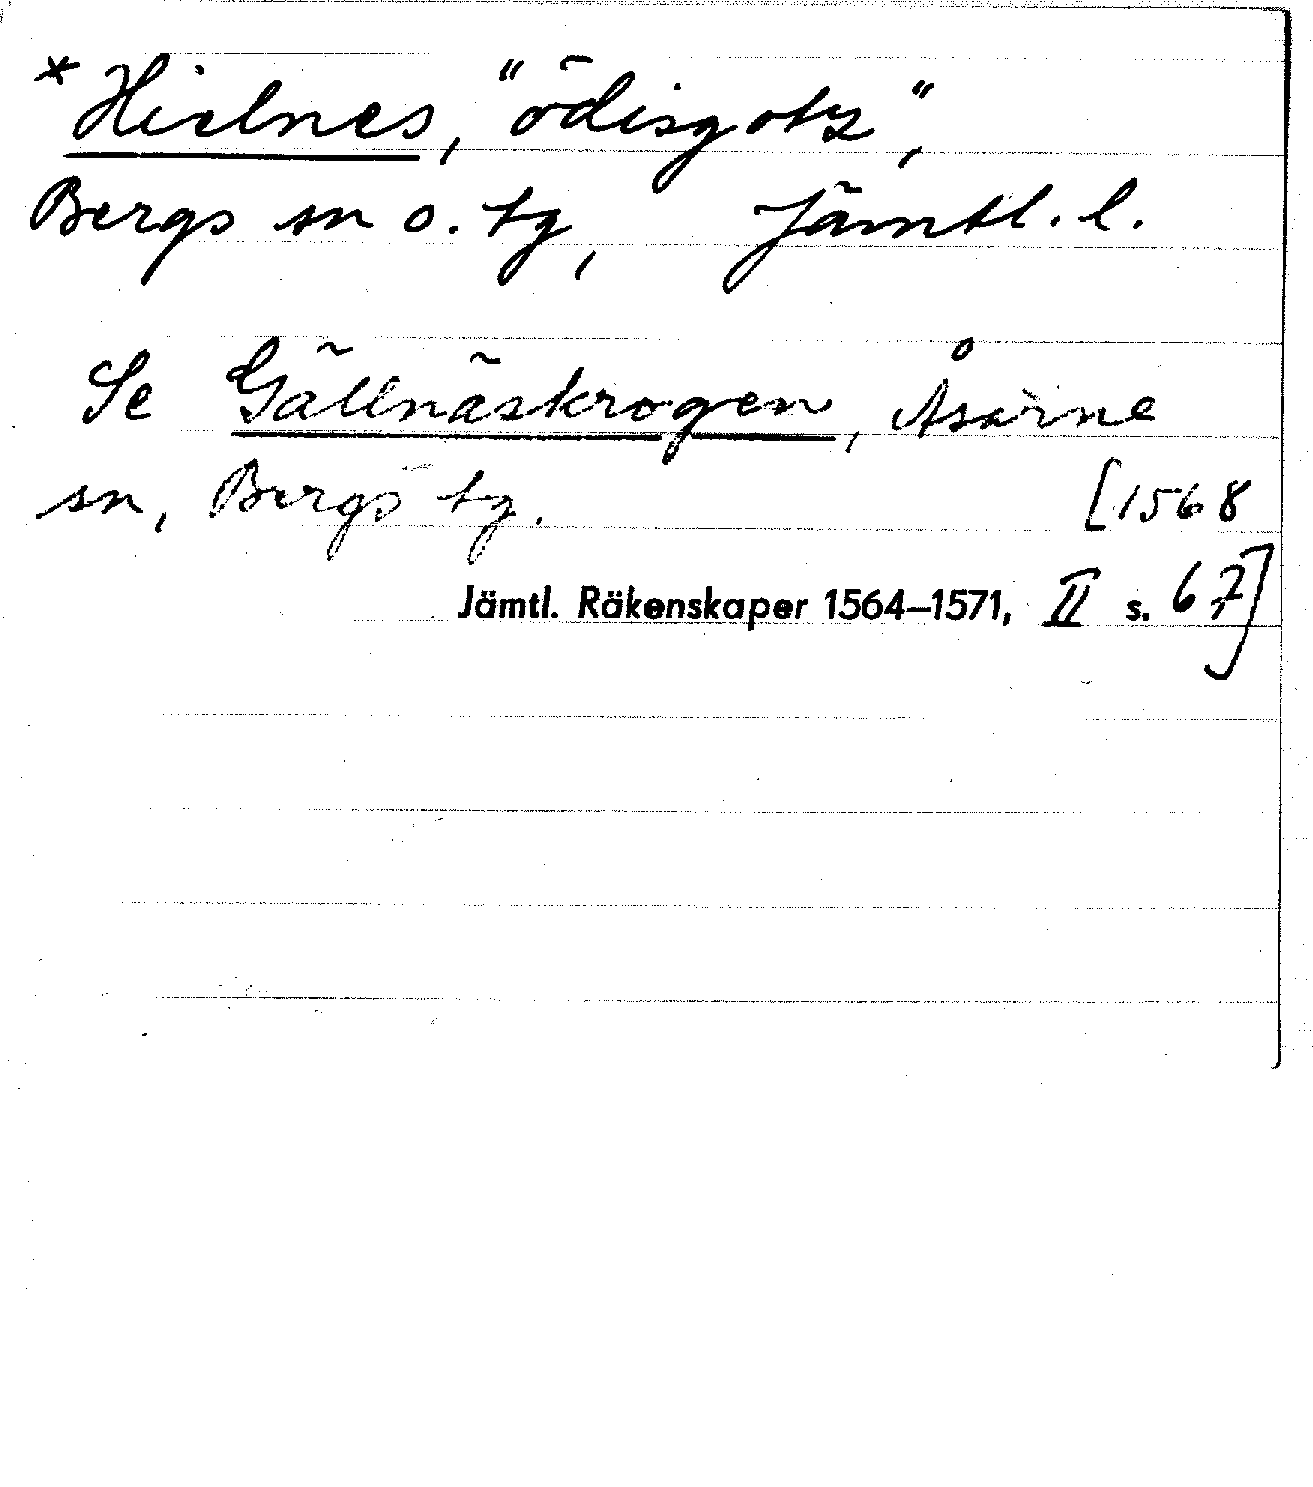 *Hielnes, "ödisgotz",
Bergs sn o. tg, Jämtl. l.
Se Gällnäskrogen, Åsarne
sn, Bergs tg. [1568
Jämtl. Räkenskaper 1564–1571, II s. 67]